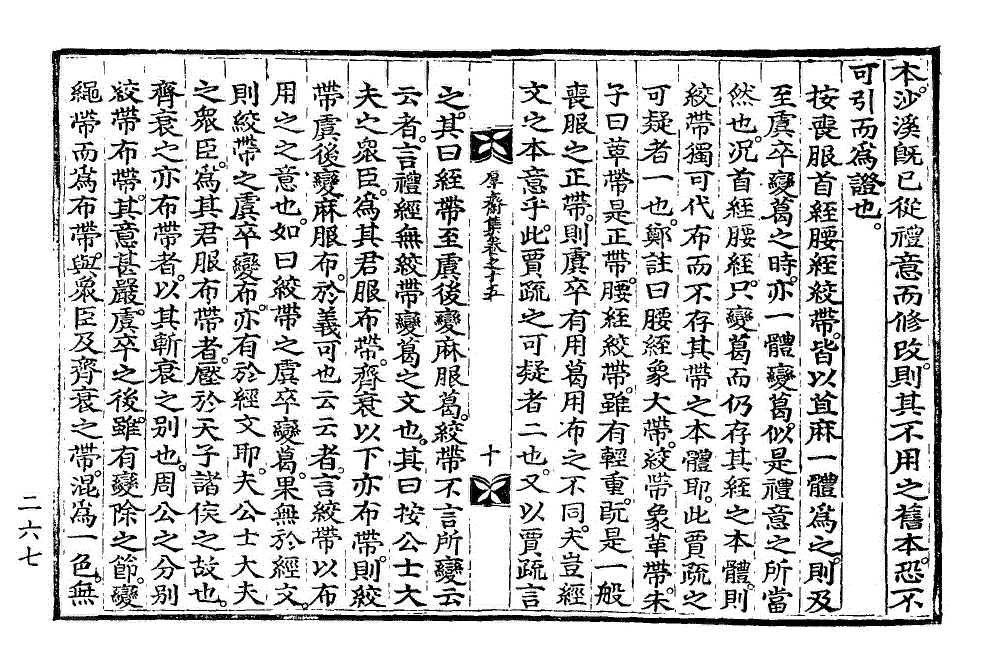 本沙溪旣已從禮意而修改。則其不用之舊本。恐不
可引而爲證也。
按喪服首絰腰絰絞帶。皆以苴麻一體爲之。則及
至虞卒變葛之時。亦一體變葛。似是禮意之所當
然也。况首絰腰絰。只變葛而仍存其絰之本體。則
絞帶獨可代布而不存其帶之本體耶。此賈疏之
可疑者一也。鄭註曰腰絰象大帶。絞帶象革帶。朱
子曰革帶是正帶。腰絰絞帶。雖有輕重。旣是一般
喪服之正帶。則虞卒有用葛用布之不同。夫豈經
文之本意乎。此賈疏之可疑者二也。又以賈疏言
厚齋集卷之十五
十
之。其曰絰帶至虞後變麻服葛。絞帶不言所變云
云者。言禮經無絞帶變葛之文也。其曰按公士大
夫之衆臣。爲其君服布帶。齊衰以下亦布帶。則絞
帶虞後變麻服布。於義可也云云者。言絞帶以布
用之之意也。如曰絞帶之虞卒變葛。果無於經文。
則絞帶之虞卒變布。亦有於經文耶。夫公士大夫
之衆臣。爲其君服布帶者。壓於天子諸侯之故也。
齊衰之亦布帶者。以其斬衰之別也。周公之分別
絞帶布帶。其意甚嚴。虞卒之後。雖有變除之節。變
繩帶而爲布帶。與衆臣及齊衰之帶。混爲一色。無
二六七